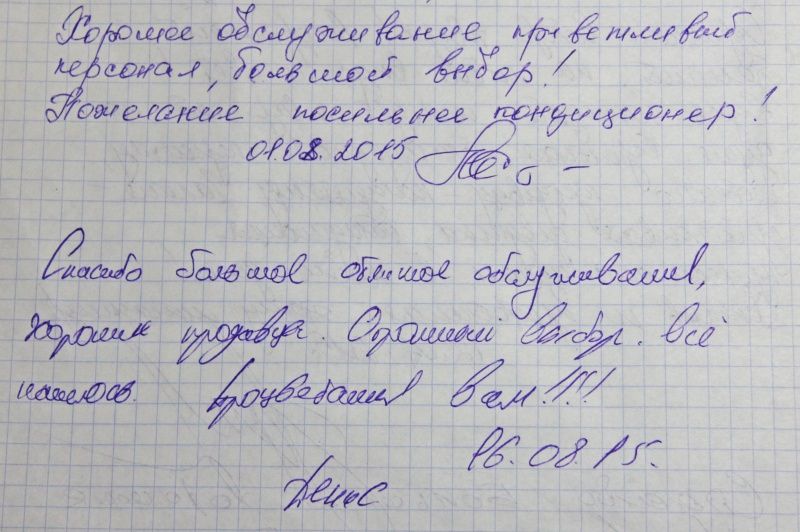 Хорошее обслуживание приветливый
персонал, большой выбор!
Пожелание посильнее кондиционер!
01.08.2015
Спасибо большое отличное обслуживание,
хорошие продавцы. Огромный выбор. всё
нашлось. Процветания Вам!!!!
16.08.15.
Денис